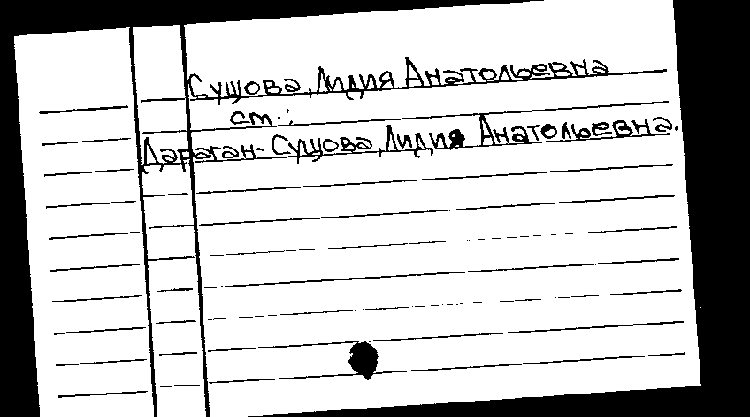 Сущова, Лидия Анатольевна
см.:
Дараган-Сущова, Лидия Анатольевна.